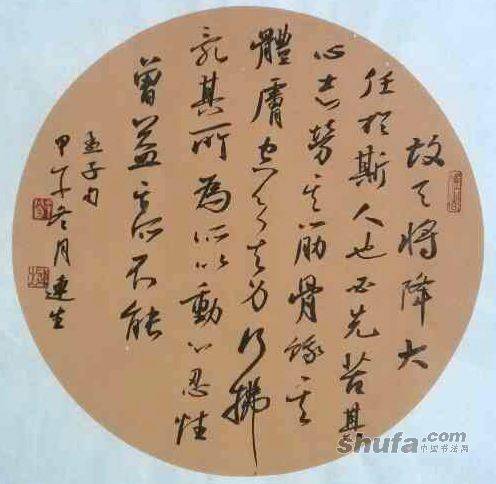 故天將降大
任於斯人也必先苦其
心志勞其筋骨餓其
體膚空乏其身行拂
亂其所為所以動心忍性
曾益其所不能
孟子句
甲午冬月連生
shufa.com
中国书法网